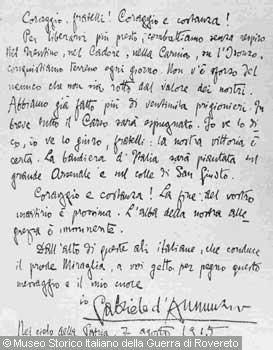 Coraggio, fratelli! Coraggio e costanza!
Per liberarvi più presto, combattiamo senza respiro.
Nel Trentino, nel Cadore, nella Carnia, su l'Isonzo,
conquistiamo terreno ogni giorno. Non v'è sforzo del
nemico che non sia rotto dal valore dei nostri.
Abbiamo già fatto più di ventimila prigionieri. In
breve tutto il Carso sarà espugnato. Io ve lo di-
co, io ve lo giuro, fratelli: la nostra vittoria è
certa. La bandiera d'Italia sarà piantata sul
grande Arsenale e sul colle di San Giusto.
Coraggio e costanza! La fine del vostro
martirio è prossima. L'alba della nostra alle-
grezza è imminente.
Dall'alto di queste ali italiane, che conduce
il prode Miraglia, a voi getto per pegno questo
messaggio e il mio cuore
io Gabriele d'Annunzio
Nel cielo della Patria, 7 agosto 1915
© Museo Storico Italiano della Guerra di Rovereto